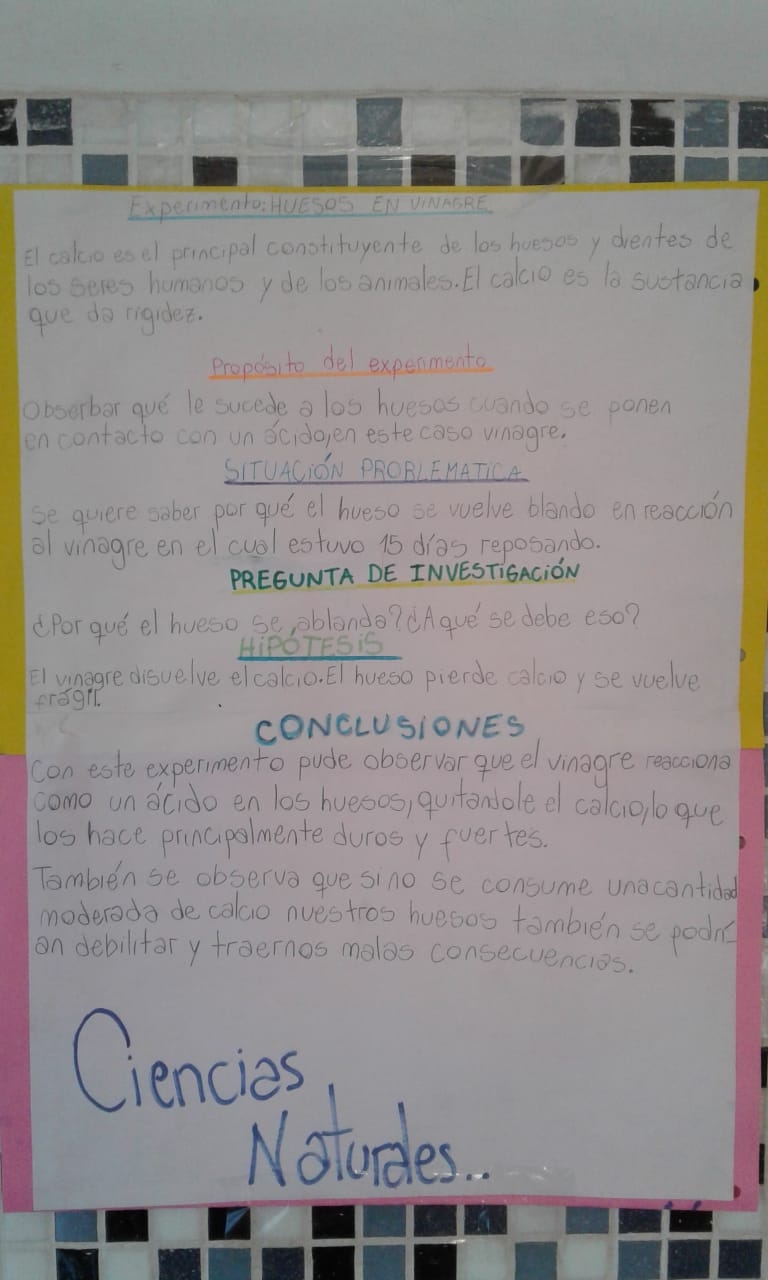 Experimento: HUESOS EN VINAGRE
El calcio es el principal constituyente de los huesos y dientes de
los seres humanos y de los animales. El calcio es la sustancia
que da rigidez.
Propósito del experimento
Obserbar qué le sucede a los huesos cuando se ponen
en contacto con un ácido, en este caso vinagre.
SITUACIÓN PROBLEMATICA
Se quiere saber por qué el hueso se vuelve blando en reacción
al vinagre en el cual estuvo 15 días reposando.
PREGUNTA DE INVESTIGACIÓN
¿Por qué el hueso se ablanda? ¿A qué se debe eso?
HIPÓTESIS
El vinagre disuelve el calcio. El hueso pierde calcio y se vuelve
frágil.
CONCLUSIONES
Con este experimento pude observar que el vinagre reacciona
como un ácido en los huesos, quitandole el calcio, lo que
los hace principalmente duros y fuertes.
También se observa que si no se consume una cantidad
moderada de calcio nuestros huesos también se podrí-
an debilitar y traernos malas consecuencias.
Ciencias
Naturales...